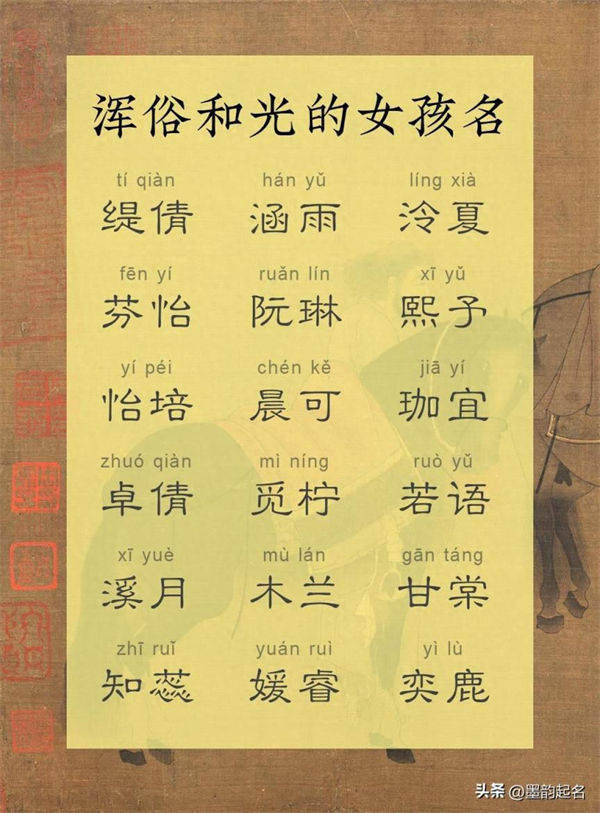 浑俗和光的女孩名
tí qiàn hán yǔ líng xià
缇倩 涵雨 泠夏
fēn yí ruǎn lín xī yǔ
芬怡 阮琳 熙予
yí péi chén kě jiā yí
怡培 晨可 珈宜
zhuó qiàn mì níng ruò yǔ
卓倩 觅柠 若语
xī yuè mù lán gān táng
溪月 木兰 甘棠
zhī ruǐ yuán ruì yì lù
知蕊 媛睿 奕鹿
头条 @墨韵起名